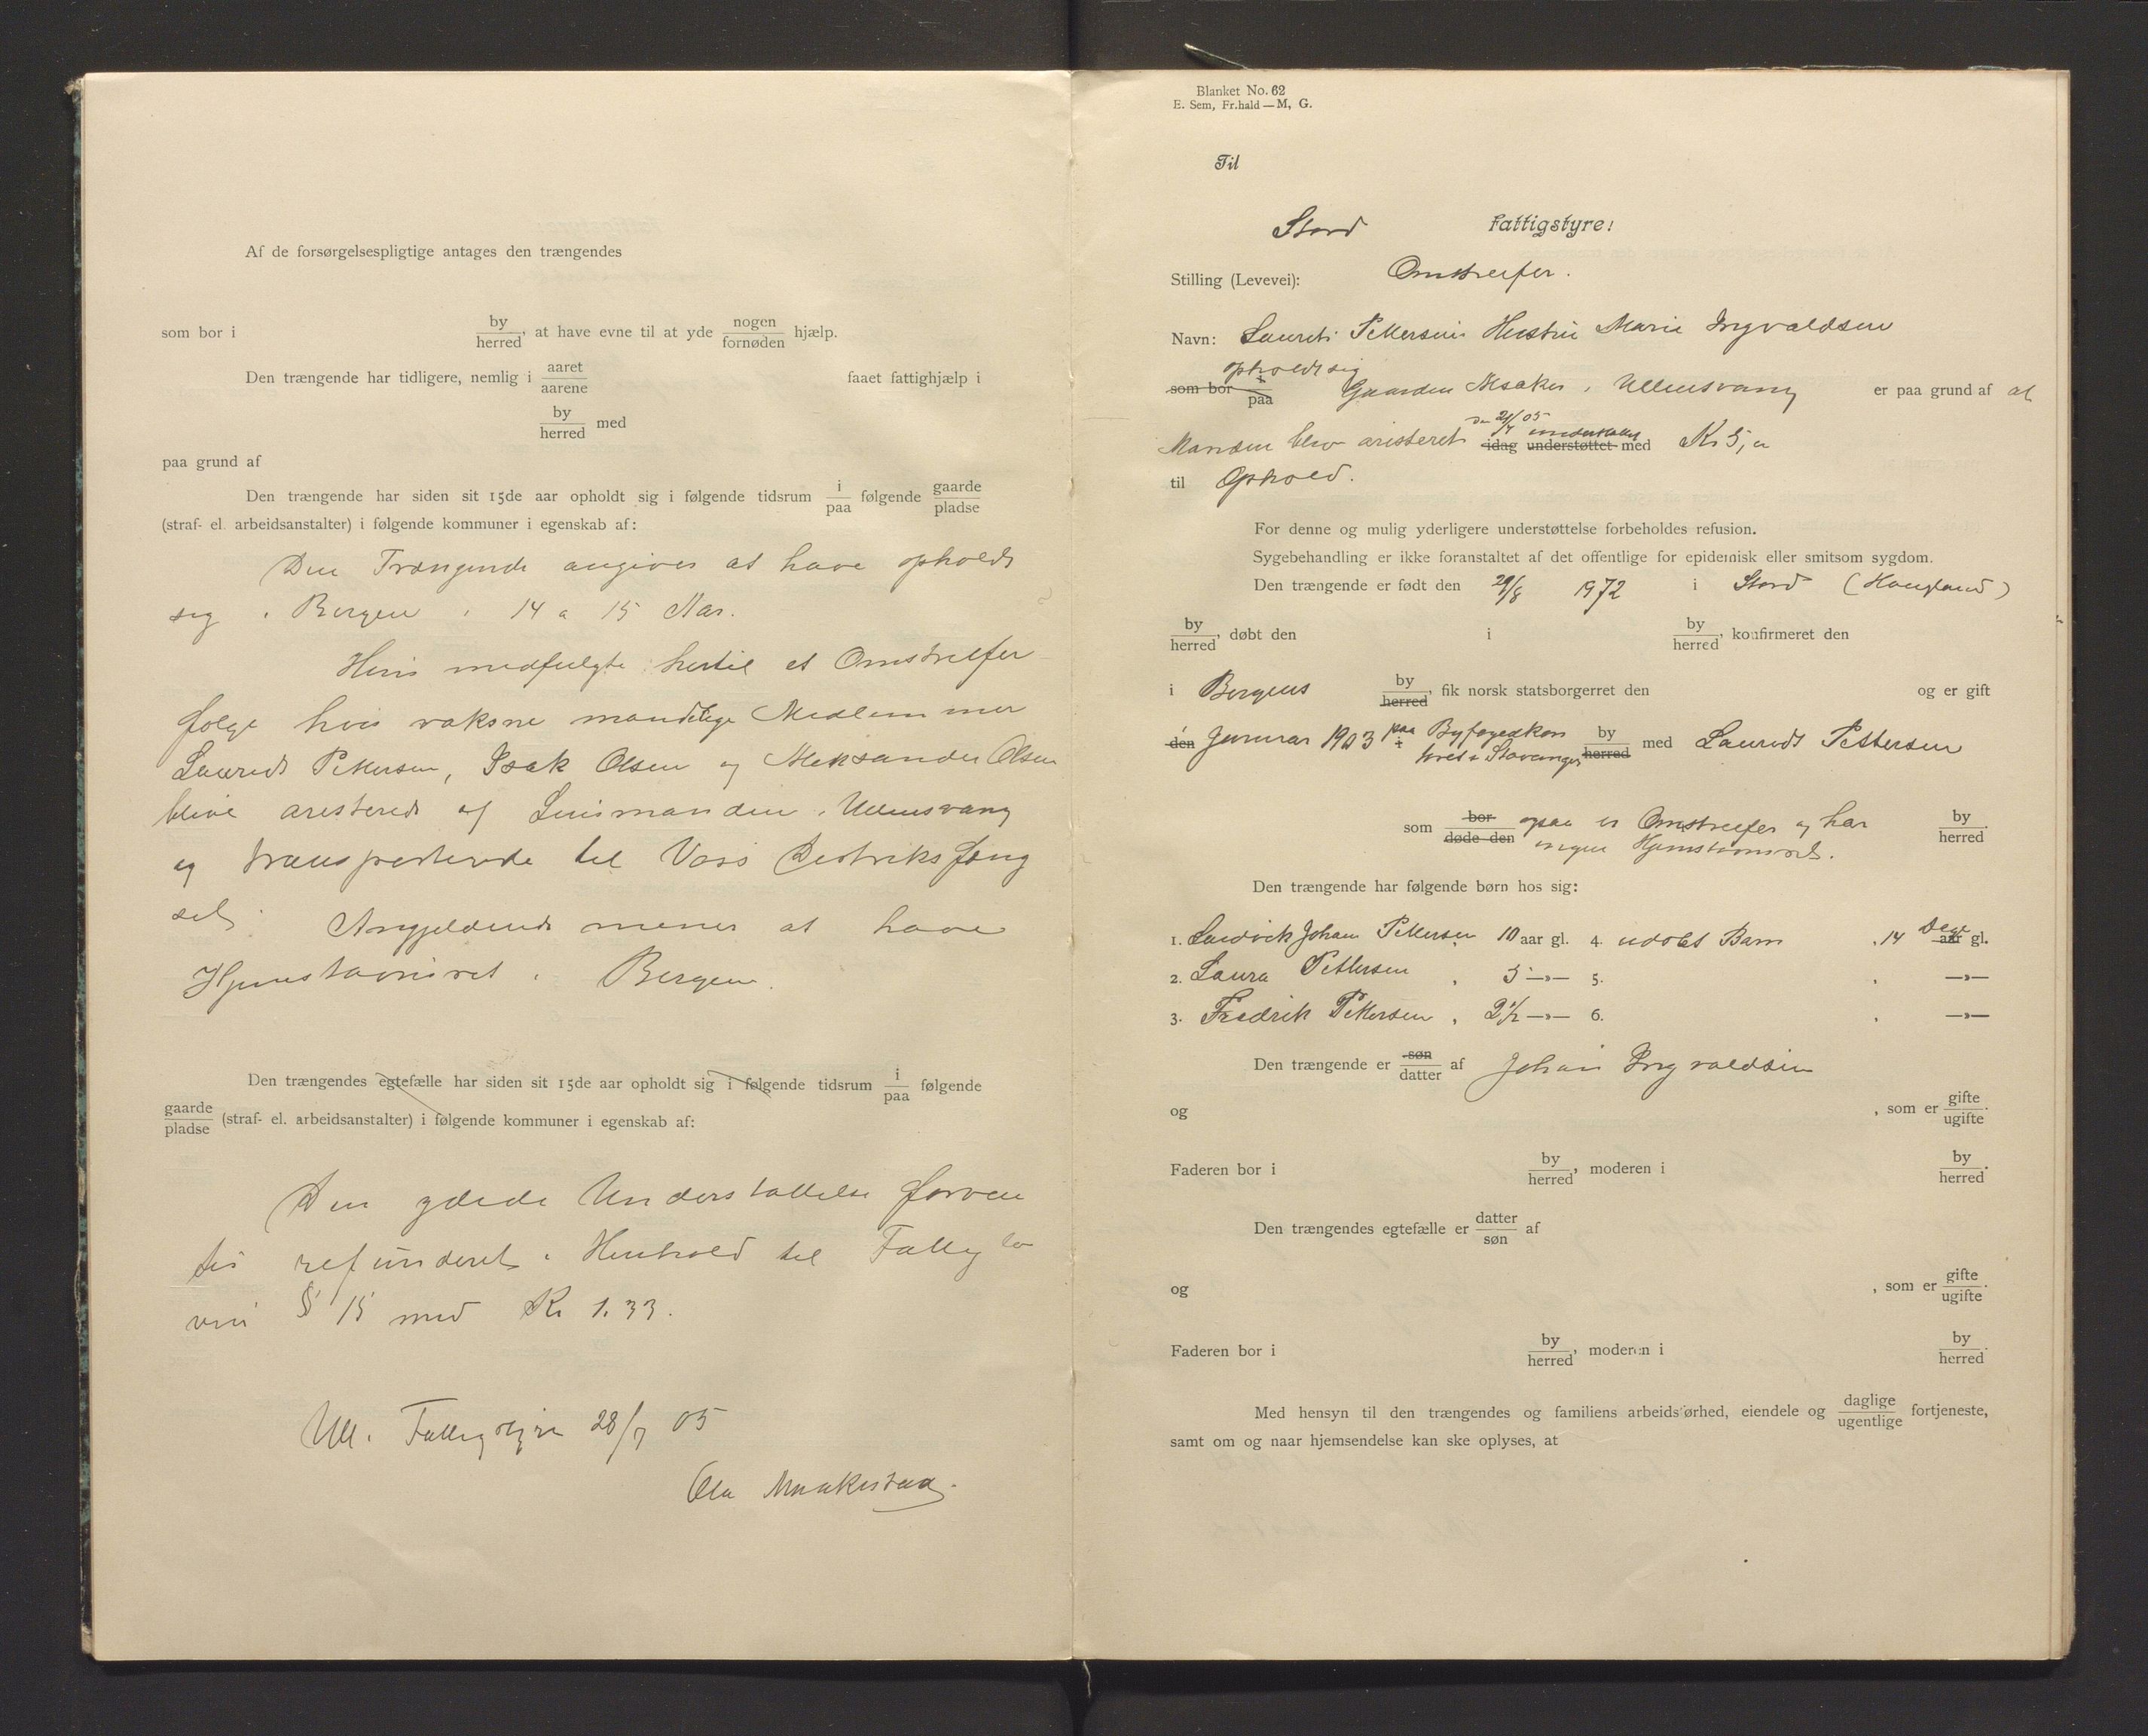 Af de forsørgelsespligtige antages den trængendes
som bor i by herred, at have evne til at yde nogen fornøden hjælp.
Den trængende har tidligere, nemlig i aaret aarene faaet fattighjælp i
by herred med
paa grund af
Den trængende har siden sit 15de aar opholdt sig i følgende tidsrum i paa følgende gaarde pladse
(straf- el. arbeidsanstalter) i følgende kommuner i egenskab af:
Den Trængende angives at have opholdt
sig i Bergen i 14 a 15 Aar.
Hun medfulgte hertil et Omstreifer
følge hvis voksne mandlige Medlemmer
Laurids Pettersen, Isak Olsen og Aleksander Olsen
blive aresterede af Lensmanden i Ullensvang
og transporterede til Voss Distriksfeng
sel. Angjeldende mener at have
Hjemstavnsret i Bergen.
Den trængendes egtefælle har siden sit 15de aar opholdt sig i følgende tidsrum i paa følgende
gaarde pladse (straf- el. arbeidsanstalter) i følgende kommuner i egenskab af:
Den ydede Understøttelse forven
tes refunderet i Henhold til Fattiglo
ven § 15 med Kr 1.33.
Ull. Fattigstyre 28/7 05
Ola Maakestad.
Blanket No. 62
E. Sem, Fr.hald — M, G.
Til
Stord Fattigstyre!
Stilling (Levevei): Omstreifer.
Navn: Laurets Pettersens Hustru Marie Ingvaldsen
opholdt sig
som bor i paa Gaarden Alsaker i Ullensvang er paa grund af at
Den 21/7 05 understøttet
Manden blev aresteret idag understøttet med Kr 5,
til Ophold.
For denne og mulig yderligere understøttelse forbeholdes refusion.
Sygebehandling er ikke foranstaltet af det offentlige for epidemisk eller smitsom sygdom.
Den trængende er født den 29/8 1972 i Stord (Haugland)
by herred, døbt den i by herred, konfirmeret den
i Bergens by herred, fik norsk statsborgerret den og er gift
den Januar 1903 paa i Byfogedkon
toret i Stavanger by herred med Laurids Pettersen
som bor døde den ogsaa er Omstreifer og har
ingen Hjemstavnsret. by herred.
Den trængende har følgende børn hos sig:
1. Ludvik Johan Pettersen 10 aar gl. 4. udøbt Barn , 14 Dage aar gl.
2. Laura Pettersen , 5 —»— 5. , —»—
3. Fredrik Pettersen , 2½ —»— 6. , —»—
Den trængende er søn datter af Johan Ingvaldsen
og , som er gifte ugifte.
Faderen bor i by herred, moderen i by herred.
Den trængendes egtefælle er datter søn af
og , som er gifte ugifte.
Faderen bor i by herred, moderen i by herred.
Med hensyn til den trængendes og familiens arbeidsførhed, eiendele og daglige ugentlige fortjeneste,
samt om og naar hjemsendelse kan ske oplyses, at